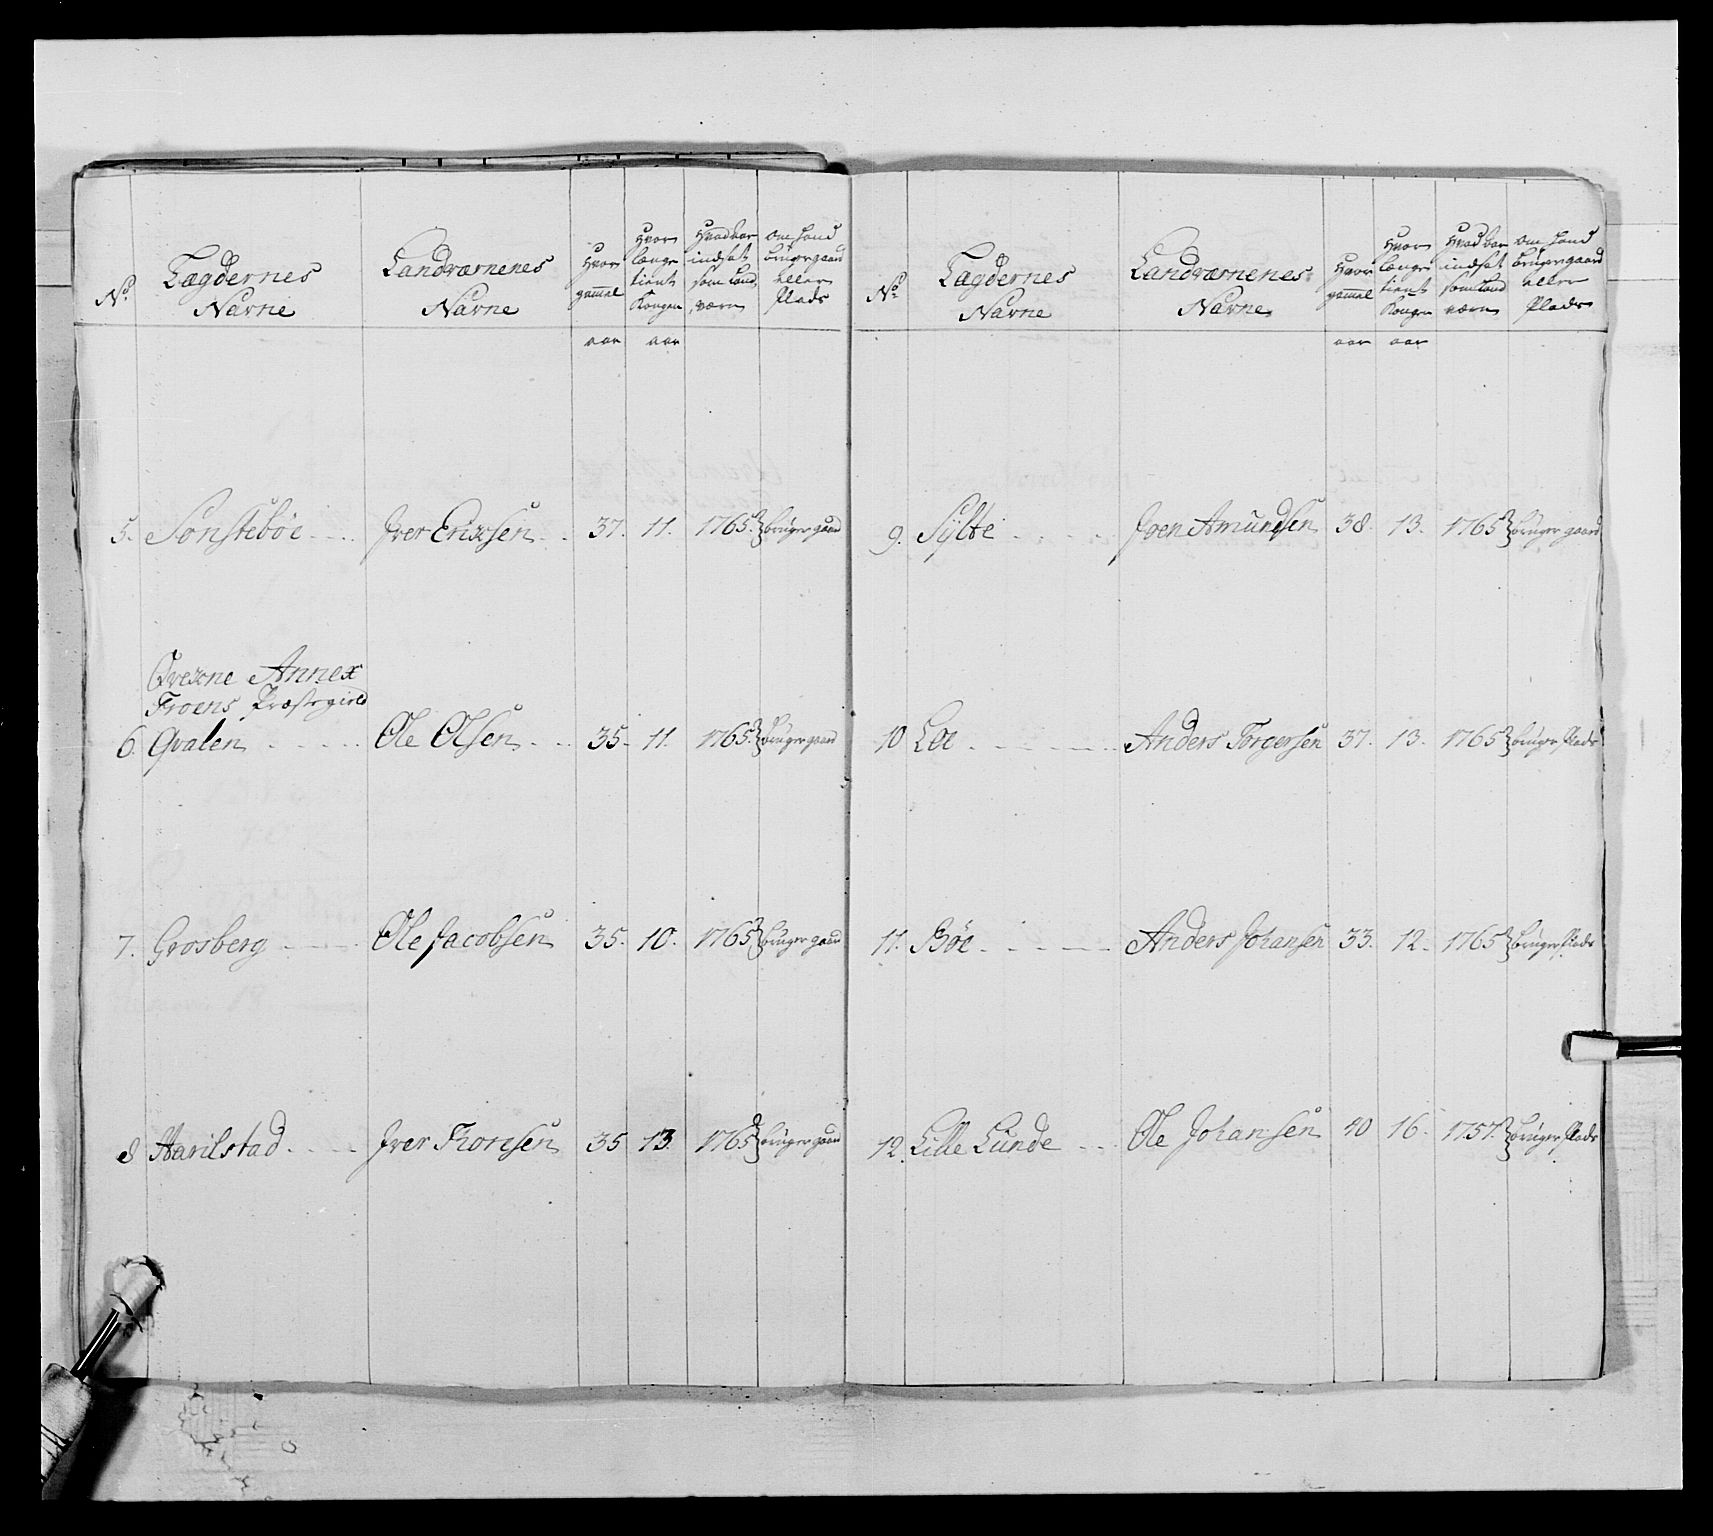 No
Lægdernes
Navne
Landværnenes
Navne
Hvor
gammel
Hvor
længe
tient
Kongen
Hvad aar
indsat
som Land
værn
Om hand
bruger gaard
eller
Plads
aar aar
5. Sønstebøe Iver Erixsen 37. 11. 1765. bruger gaard
Qvexne Annex
Froens Præstegield
6. Qvalen Ole Olsen 35. 11. 1765. bruger gaard
7. Grosberg Ole Jacobsen 35. 10. 1765 bruger gaard
8 Havilstad Iver Thoresen 35 13. 1765 bruger gaard
No
Lægdernes
Navne
Landværnenes
Navne
Hvor
gammel
Hvor
længe
tient
Kongen
Hvad aar
indsat
som Land
værn
Om hand
bruger gaard
eller
Plads
aar aar
9. Sylte Iven Amundsen 38. 13. 1765 bruger gaard
10 Loe Anders Torgersen 37. 13. 1765 bruger Plads
11. Bøe Anders Johansen 33. 12. 1765 bruger Plads
12. Lille Lunde Ole Johansen 40 16. 1757. bruger Plads